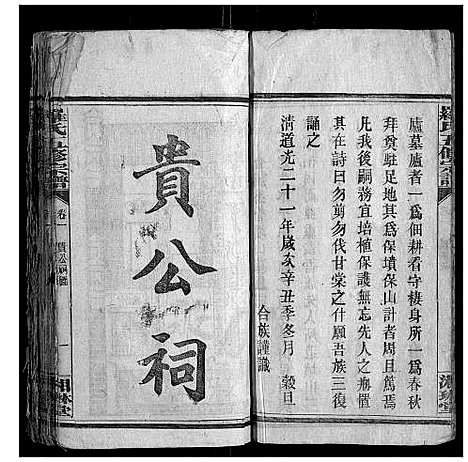 羅氏五修宗譜
廬墓廬者一爲佃耕看守棲身所一爲春秋
拜奠駐足地其爲保墳保山計者周且篤焉
凡我後嗣務宜培植保護無忘先人之
其在詩曰勿剪勿伐甘棠之什願吾族三復
誦之
清道光二十一年歲次辛丑季冬月 穀旦
合族謹識
貴公祠
羅氏五修宗譜
卷一
貴公祠
一